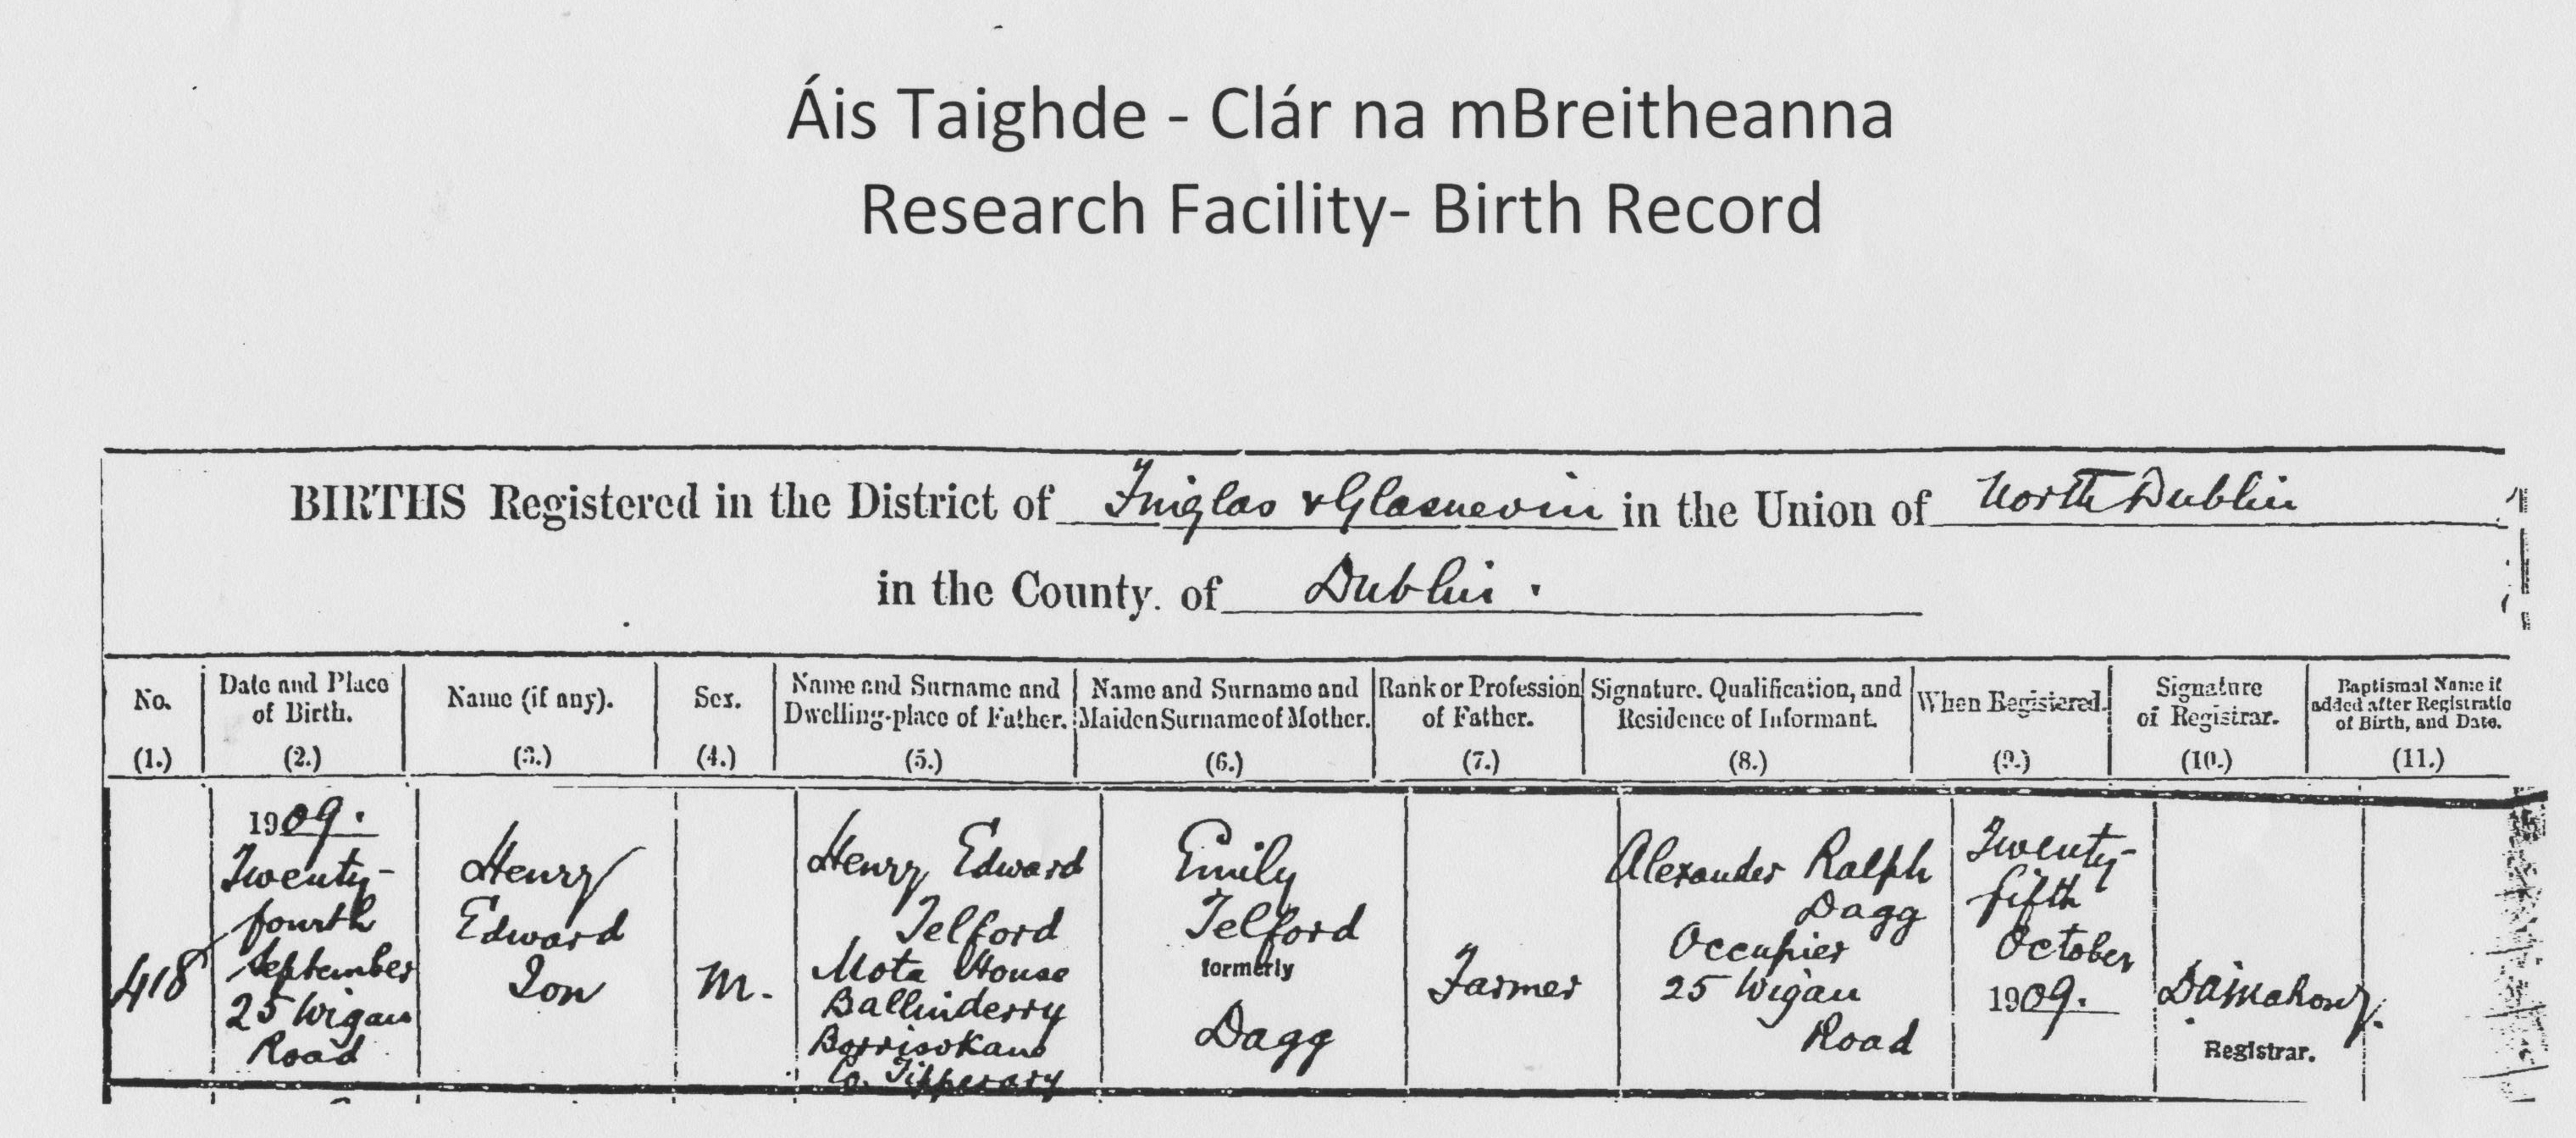 Áis Taighde - Clár na mBreitheanna
Research Facility- Birth Record
BIRTHS Registered in the District of Finglas & Glasnevin in the Union of North Dublin
in the County. of Dublin.
No.
(1.)
Date and Place
of Birth.
(2.)
Name (if any).
(3.)
Sex.
(4.)
Name and Surname and
Dwelling-place of Father.
(5.)
Name and Surname and
Maiden Surname of Mother.
(6.)
Rank or Profession
of Father.
(7.)
Signature, Qualification, and
Residence of Informant.
(8.)
When Registered.
(9.)
Signature
of Registrar.
(10.)
Baptismal Name if
added after Registratio
of Birth, and Date.
(11.)
418
1909.
Twenty-
fourth
September
25 Wigan
Road
Henry
Edward
Ion
M.
Henry Edward
Telford
Mota House
Ballinderry
Borrisokane
Co. Tipperary
Emily
Telford
formerly
Dagg
Farmer
Alexander Ralph
Dagg
Occupier
25 Wigan
Road
Twenty-
fifth
October
1909.
Registrar.